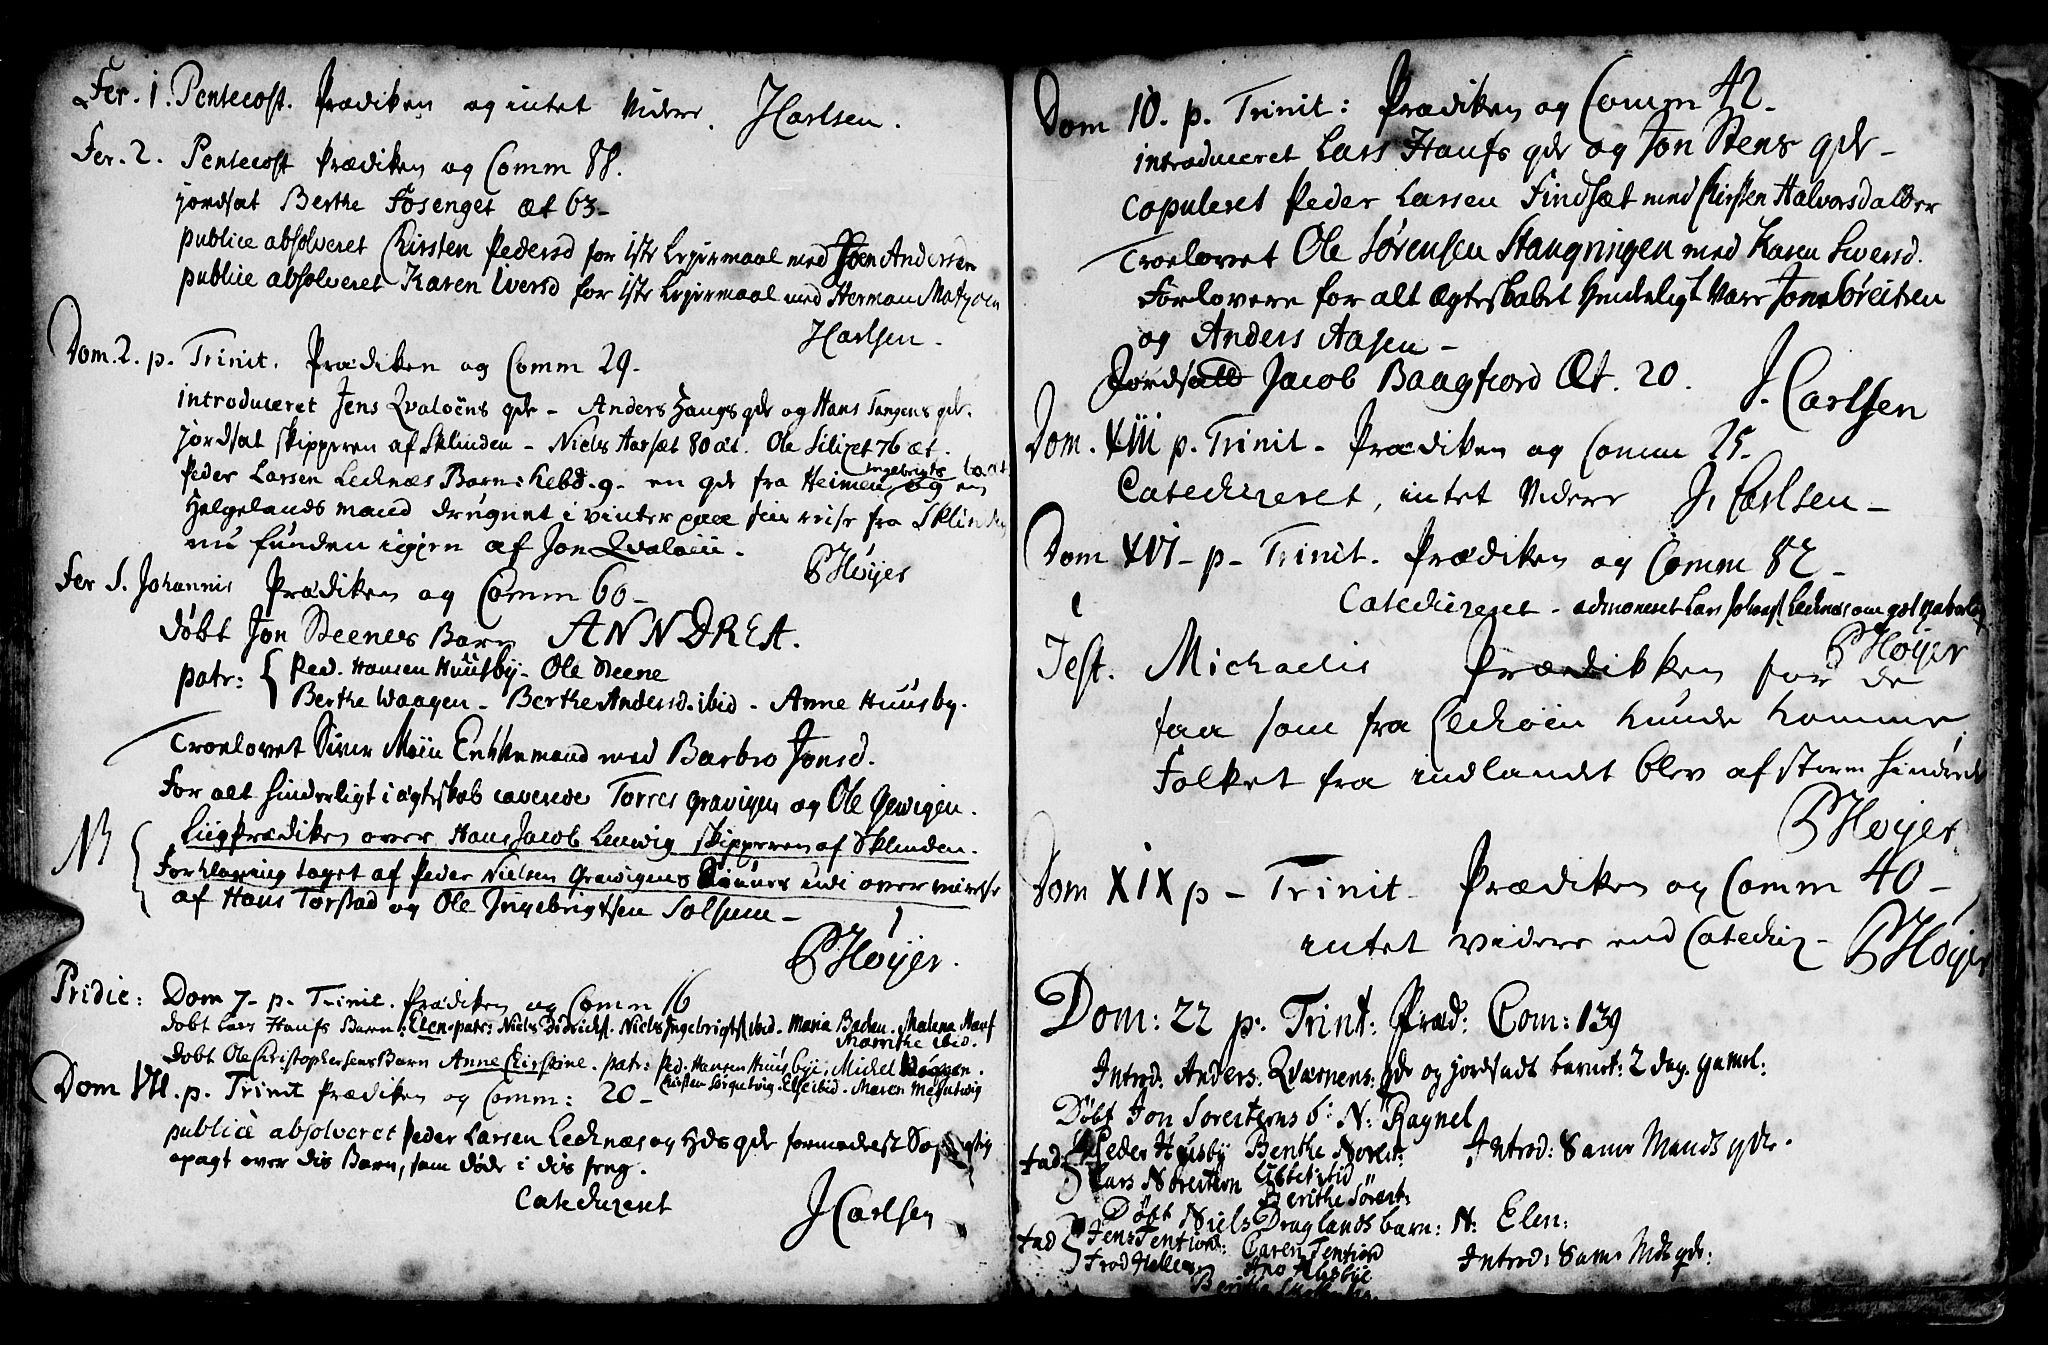 Fer. 1. Pentecost. Prædiken og intet videre. JCarlsen.
Fer. 2. Pentecost Prædiken og Comm 88.
jordsat Berthe Fosenget æt 63-
publice absolveret Chirsten Pedersd for 1ste Lejermaal med Joen Andersen
publice absolveret Karen Iversd for 1ste Lejermaal med Herman Matzøen
JCarlsen.
Dom. 2. p. Trinit. Prædiken og Comm 29.
introduceret Jens Qvaløens qde - Anders Haugs qde og Hans Tangens qde.
jordsat skipperen af Sklinden - Niels Aarsæt 80 æt. Ole 76 æt.
Peder Larsen Lecknæs Barn: hebd. 9. en qde fra Heimen Ingebrigts og en
Helgelands mand drugnet i vinter paa sin reise fra Sklinden
nu funden igjen af Jon Qvaløen.
PHøyer
Fer S. Johannis Prædiken og Comm 60-
døbt Jon Steenes Barn ANNDREA.
patr: { Ped. Hansen Huusby - Ole Steene
Berthe Waagen - Berthe Andersd. ibid - Anne Huusby.
Troelovet Siver Møin Enkkemand med Barbro Jonsd.
For alt hinderligt i ægteskab caverede Torres Gravigen og Ole Gewigen.
NB { Liigprædiken over Hans Jacob Ludwig skipperen af Sklinden.
Forklaring taget af Peder Nielsen Gravigens
af Hans Torstad og Ole Ingebrigtsen Solsem -
PHøyer.
Pridie: Dom 7. p. Trinit. Prædiken og Comm 16
døbt Lars Haufs Barn: Elen. patr: Niels Didrichs. Niels Ingebrigts ibid. Maria Baden. Malena Hauf
Marithe ibid.
døbt Ole Christophersens Barn Anne Chirstine. patr: Ped. Hansen Huusbye, Michel
Dom VII. p. Trinit Prædiken og Comm: 20 -
publicè absolveret Peder Larsen Lecknæs og Hds qde formedelst
apagt over dis Barn, som døde i dis seng.
Catechizeret JCarlsen
Dom 10. p. Trinit: Prædiken og Comm 42-
introduceret Lars Haufs qde og Jon Stens qde-
Copuleret Peder Larsen Findsæt med Chirsten Halvorsdatter
Troelovet Ole Sørensen Stangringen med Karen Siversd.
Forlovere for alt ægteskabet hinderligt vare Jon Søreitsen
og Anders Aasen -
Jordsatt Jacob Baagfiord Æt. 20. J. Carlsen
Dom. XIII p. Trinit - Prædiken og Comm 25-
Catechizeret, intet videre J. Carlsen -
Dom XVI - p - Trinit. Prædiken og Comm 82 -
Catechizeret - admoneret Lars Lecknæs om
PHøyer
Fest. Michaelis Prædikken for de
faa som fra Leckøen kunde komme,
Folket fra indlandet blev af storm hindrede
PHøyer.
Dom XIX p - Trinit - Prædiken og Comm 40 -
intet videre end Catechiz - PHøyer
Dom: 22 p. Trint: Præd: Com: 139
Introd: Anders. Qværnens. qde og jordsadt barnet: 2 dag. gamel:
Døbt Jon Sorestems b: N: Ragnel
fad { Peder Husby Berthe Norest: Introd: Same Mands qde.
Lars Norestem ibid
Berithe Sørest:
Døbt Niels Draglands barn: N: Elen:
fad { Jens Tentiord: Caren Tentiord Introd: Same Mds qde:
Ano Husbye